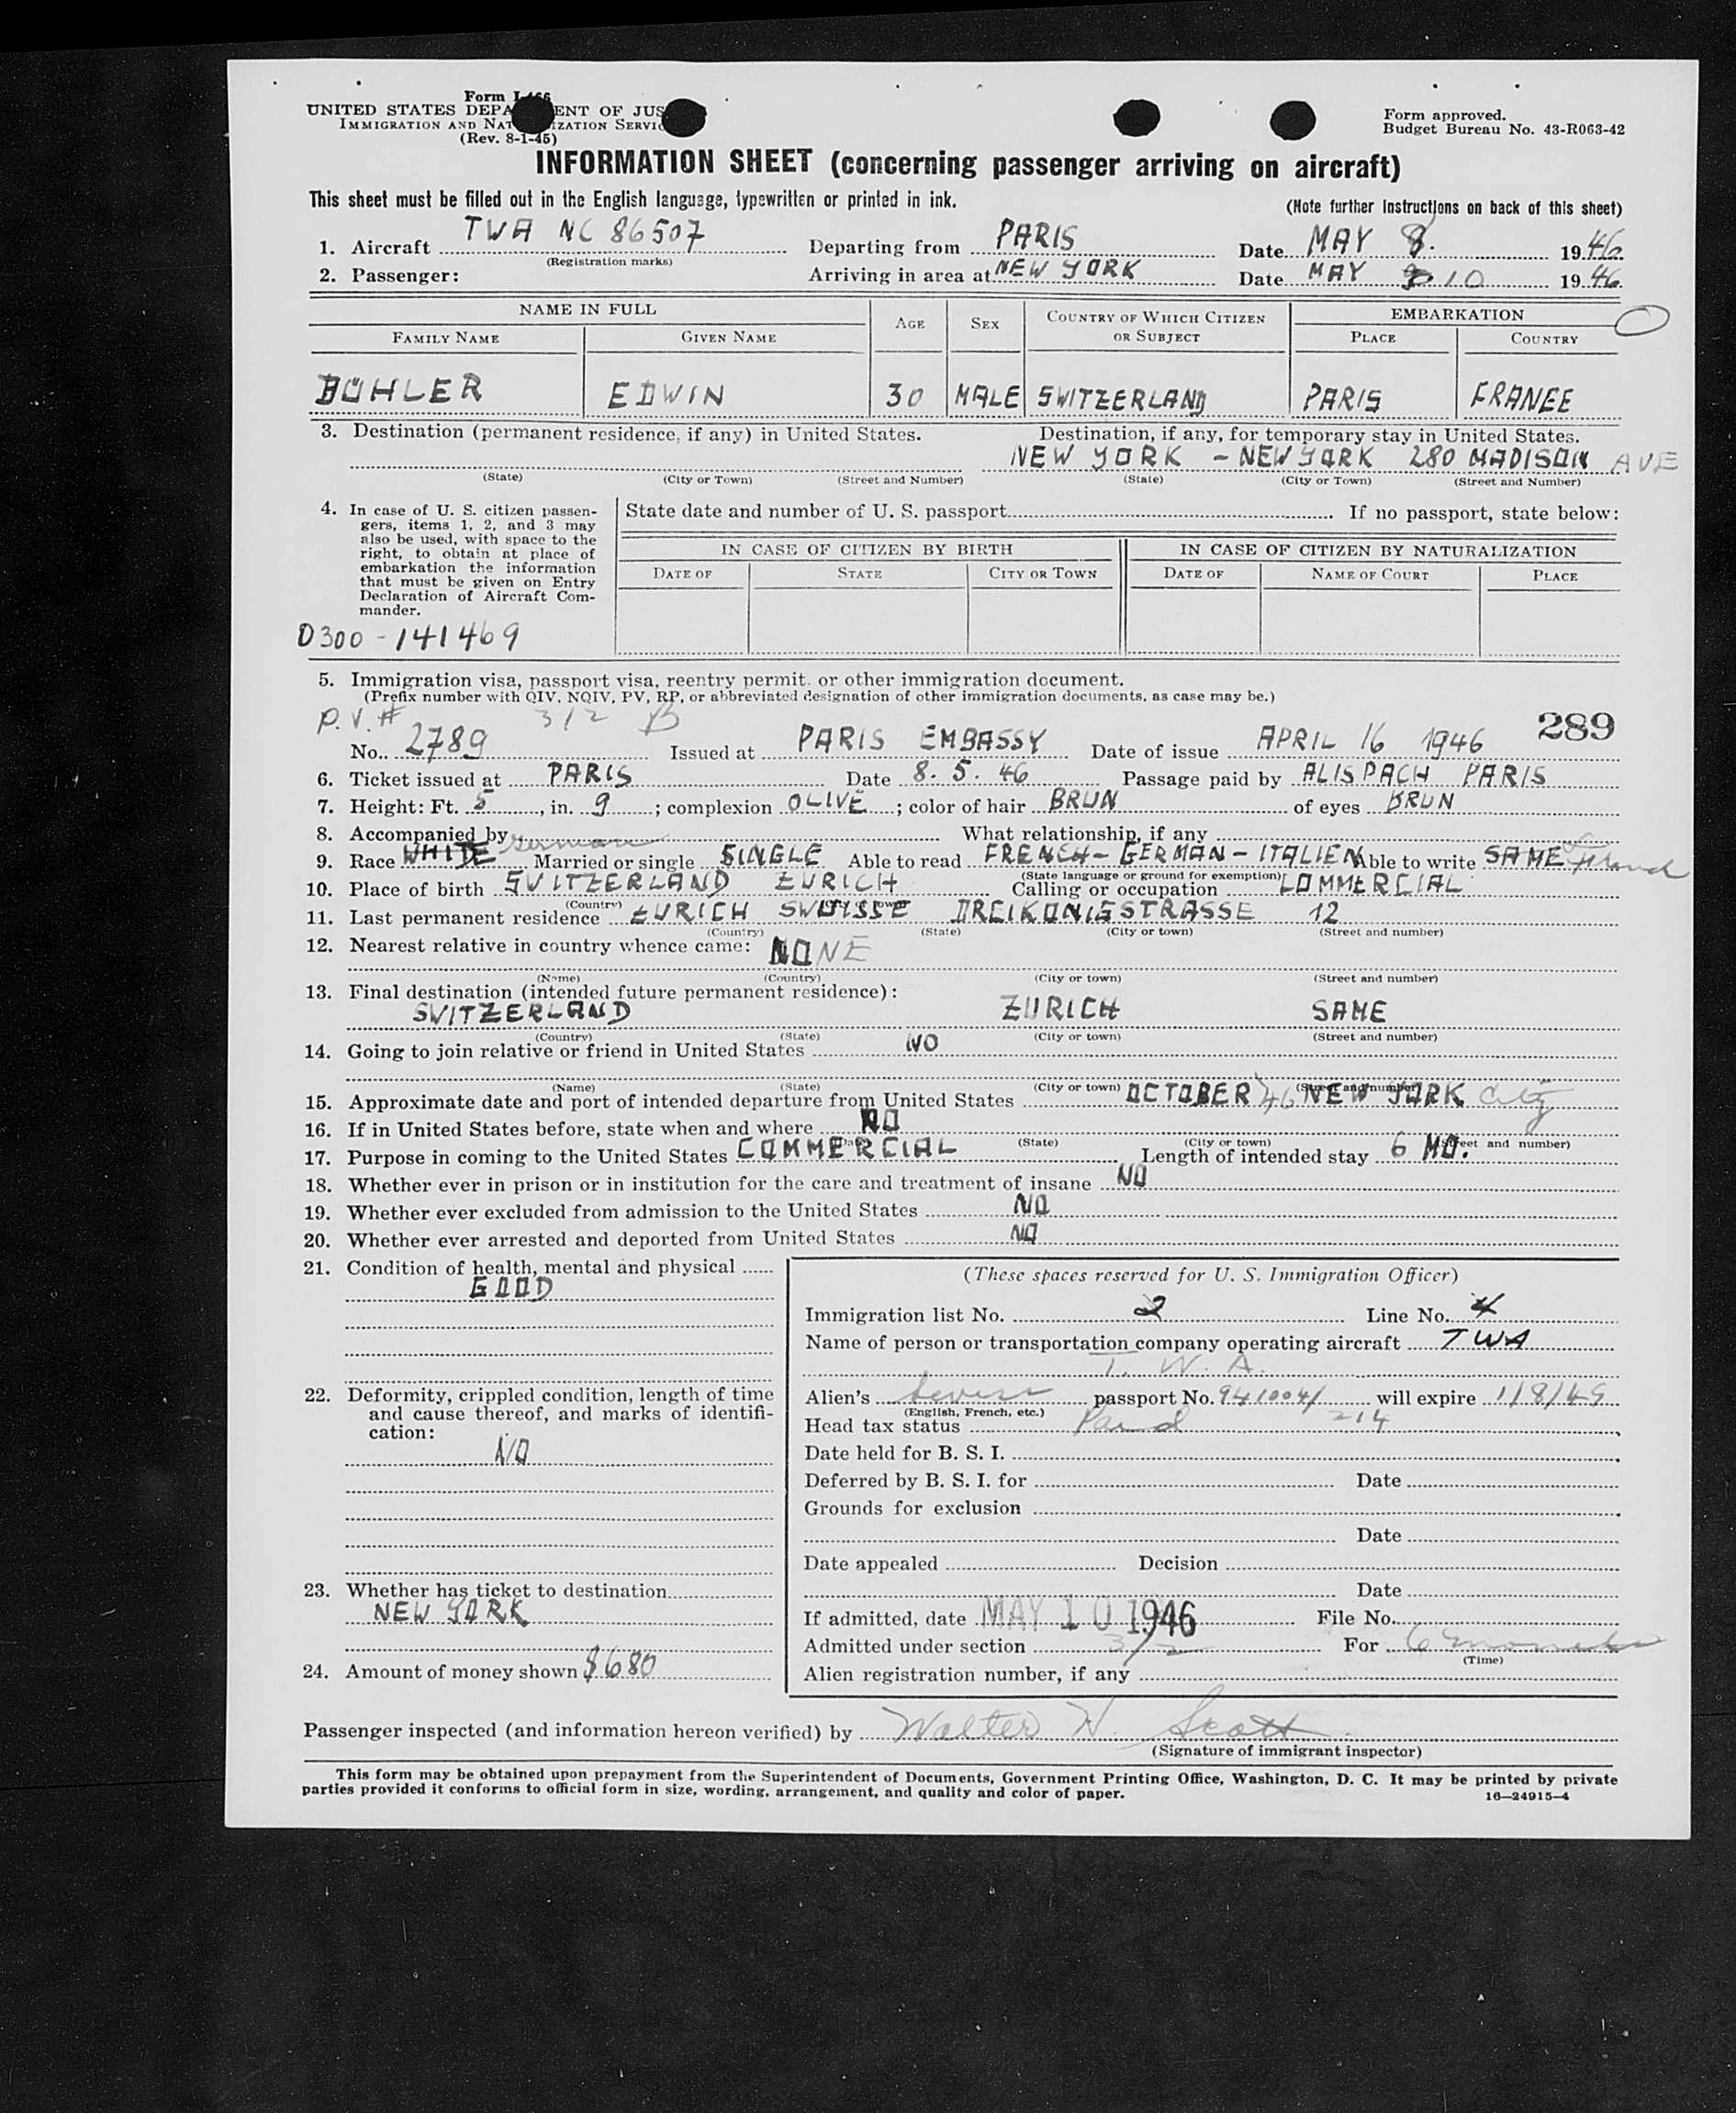 Form I-466
UNITED STATES DEPA ENT OF JUS
IMMIGRATION AND NAT IZATION SERVIC
(Rev. 8-1-45)
Form approved.
Budget Bureau No. 43-R063-42
INFORMATION SHEET (concerning passenger arriving on aircraft)
This sheet must be filled out in the English language, typewritten or printed in ink.
(Note further instructions on back of this sheet)
1. Aircraft TWA NC 86507 Departing from PARIS Date MAY 8. 1946
(Registration marks)
2. Passenger: Arriving in area at NEW YORK Date MAY 10 1946
NAME IN FULL AGE SEX COUNTRY OF WHICH CITIZEN OR SUBJECT EMBARKATION
FAMILY NAME GIVEN NAME PLACE COUNTRY
BÜHLER EDWIN 30 MALE SWITZERLAND PARIS FRANCE
3. Destination (permanent residence, if any) in United States. Destination, if any, for temporary stay in United States.
NEW YORK - NEW YORK 280 MADISON AVE
(State) (City or Town) (Street and Number) (State) (City or Town) (Street and Number)
4. In case of U. S. citizen passen-
gers, items 1, 2, and 3 may
also be used, with space to the
right, to obtain at place of
embarkation the information
that must be given on Entry
Declaration of Aircraft Com-
mander.
State date and number of U. S. passport If no passport, state below:
IN CASE OF CITIZEN BY BIRTH IN CASE OF CITIZEN BY NATURALIZATION
DATE OF STATE CITY OR TOWN DATE OF NAME OF COURT PLACE
0300-141469
5. Immigration visa, passport visa, reentry permit, or other immigration document.
(Prefix number with QIV, NQIV, PV, RP, or abbreviated designation of other immigration documents, as case may be.)
P.V.# 3/2 B 289
No. 2789 Issued at PARIS EMBASSY Date of issue APRIL 16 1946
6. Ticket issued at PARIS Date 8. 5. 46 Passage paid by ALISPACH PARIS
7. Height: Ft. 5, in. 9; complexion OLIVE; color of hair BRUN of eyes BRUN
8. Accompanied by What relationship, if any
German
9. Race WHITE Married or single SINGLE Able to read FRENCH- GERMAN - ITALIEN Able to write SAME
(State language or ground for exemption)
10. Place of birth SVITZERLAND ZURICH Calling or occupation COMMERCIAL
(Country) (City or town)
11. Last permanent residence ZURICH SWUISSE DREIKÖNIGSTRASSE 12
(Country) (State) (City or town) (Street and number)
12. Nearest relative in country whence came: NONE
(Name) (Country) (City or town) (Street and number)
13. Final destination (intended future permanent residence):
SVITZERLAND ZURICH SAME
(Country) (State) (City or town) (Street and number)
14. Going to join relative or friend in United States NO
(Name) (State) (City or town) (Street and number)
15. Approximate date and port of intended departure from United States OCTOBER /46 NEW YORK City
16. If in United States before, state when and where NO
(Date) (State) (City or town) (Street and number)
17. Purpose in coming to the United States COMMERCIAL Length of intended stay 6 MO.
18. Whether ever in prison or in institution for the care and treatment of insane NO
19. Whether ever excluded from admission to the United States NO
20. Whether ever arrested and deported from United States NO
21. Condition of health, mental and physical
GOOD
22. Deformity, crippled condition, length of time
and cause thereof, and marks of identifi-
cation:
NO
23. Whether has ticket to destination
NEW YORK
24. Amount of money shown $680
(These spaces reserved for U. S. Immigration Officer)
Immigration list No. 2 Line No. 4
Name of person or transportation company operating aircraft TWA
T. W. A.
Alien's Swiss passport No. 941004/ will expire 1/8/49
(English, French, etc.)
Head tax status Paid 214
Date held for B. S. I.
Deferred by B. S. I. for Date
Grounds for exclusion
Date
Date appealed Decision
Date
If admitted, date MAY 10 1946 File No.
Admitted under section 3/2 For 6 months
(Time)
Alien registration number, if any
Passenger inspected (and information hereon verified) by Walter H. Scott
(Signature of immigrant inspector)
This form may be obtained upon prepayment from the Superintendent of Documents, Government Printing Office, Washington, D. C. It may be printed by private
parties provided it conforms to official form in size, wording, arrangement, and quality and color of paper.
16—24915-4